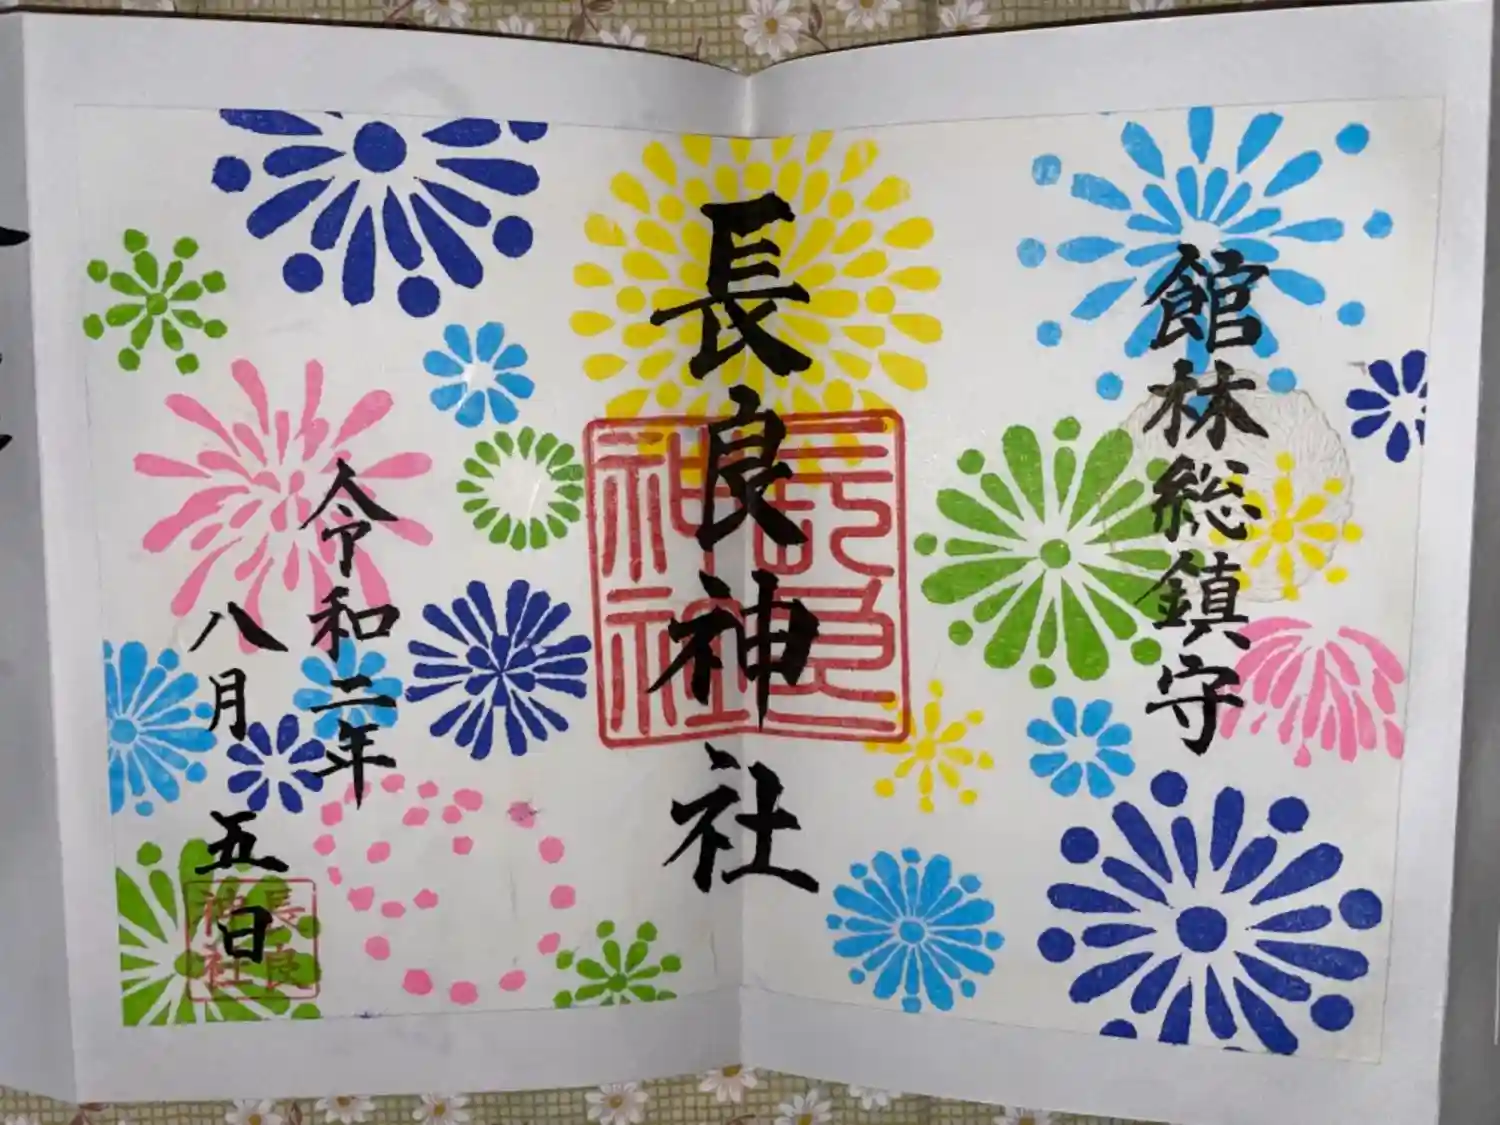 館林総鎮守
長良神社
長良神社
令和二年
八月五日
長良神社